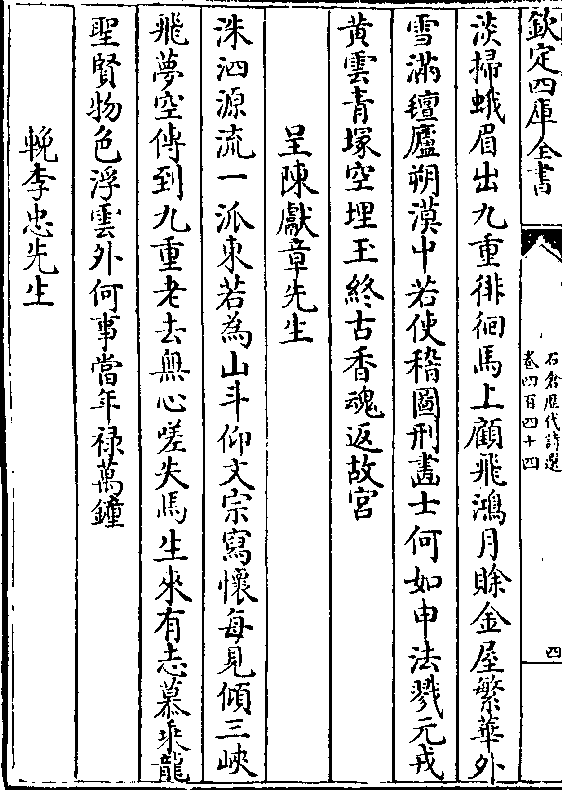 欽定四庫全書
石倉歷代詩選
卷四百四十四
四
淡掃蛾眉出九重徘徊馬上顧飛鴻月賖金屋繁華外
雪滿氊廬朔漠中若使稽圖刑畫士何如申法戮元戎
黄雲青塚空埋玉終古香魂返故宮
呈陳獻章先生
洙泗源流一派東若為山斗仰文宗寫懐每見傾三峽
飛夢空傳到九重老去無心嗟失馬生來有志慕乘龍
聖賢物色浮雲外何事當年禄萬鐘
輓李忠先生